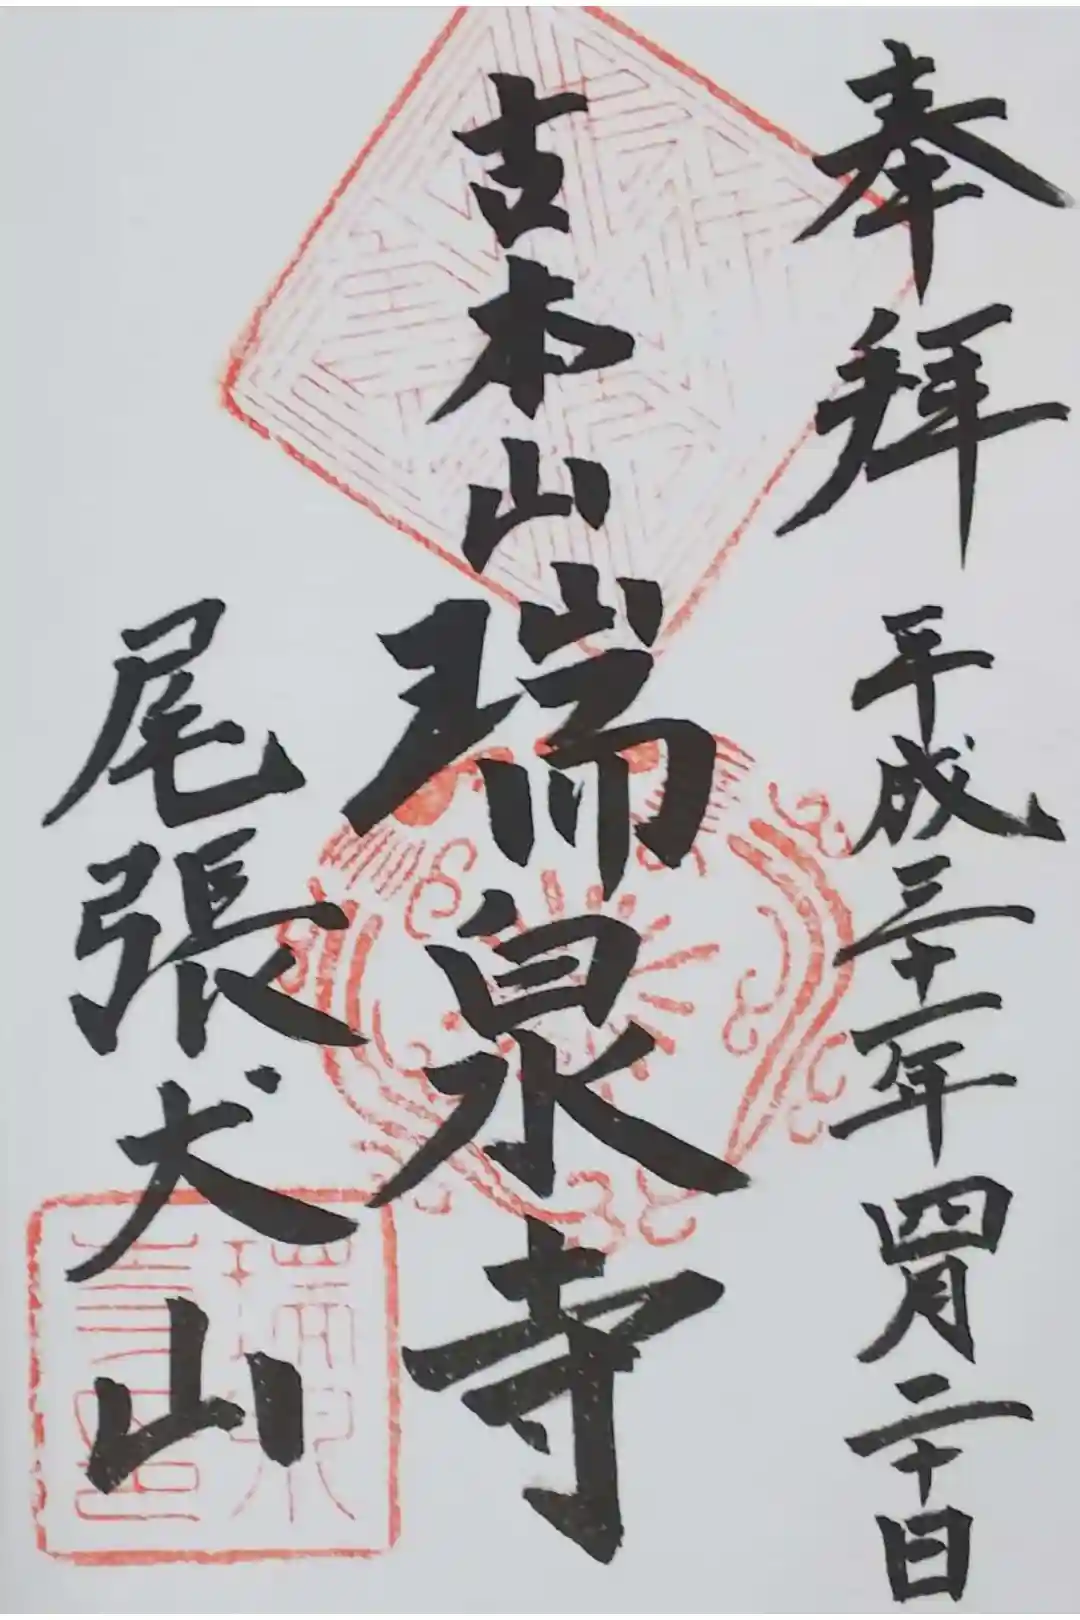 奉拜 平成三十一年四月二十日
古本山瑞泉寺
尾張犬山
瑞泉
寺印